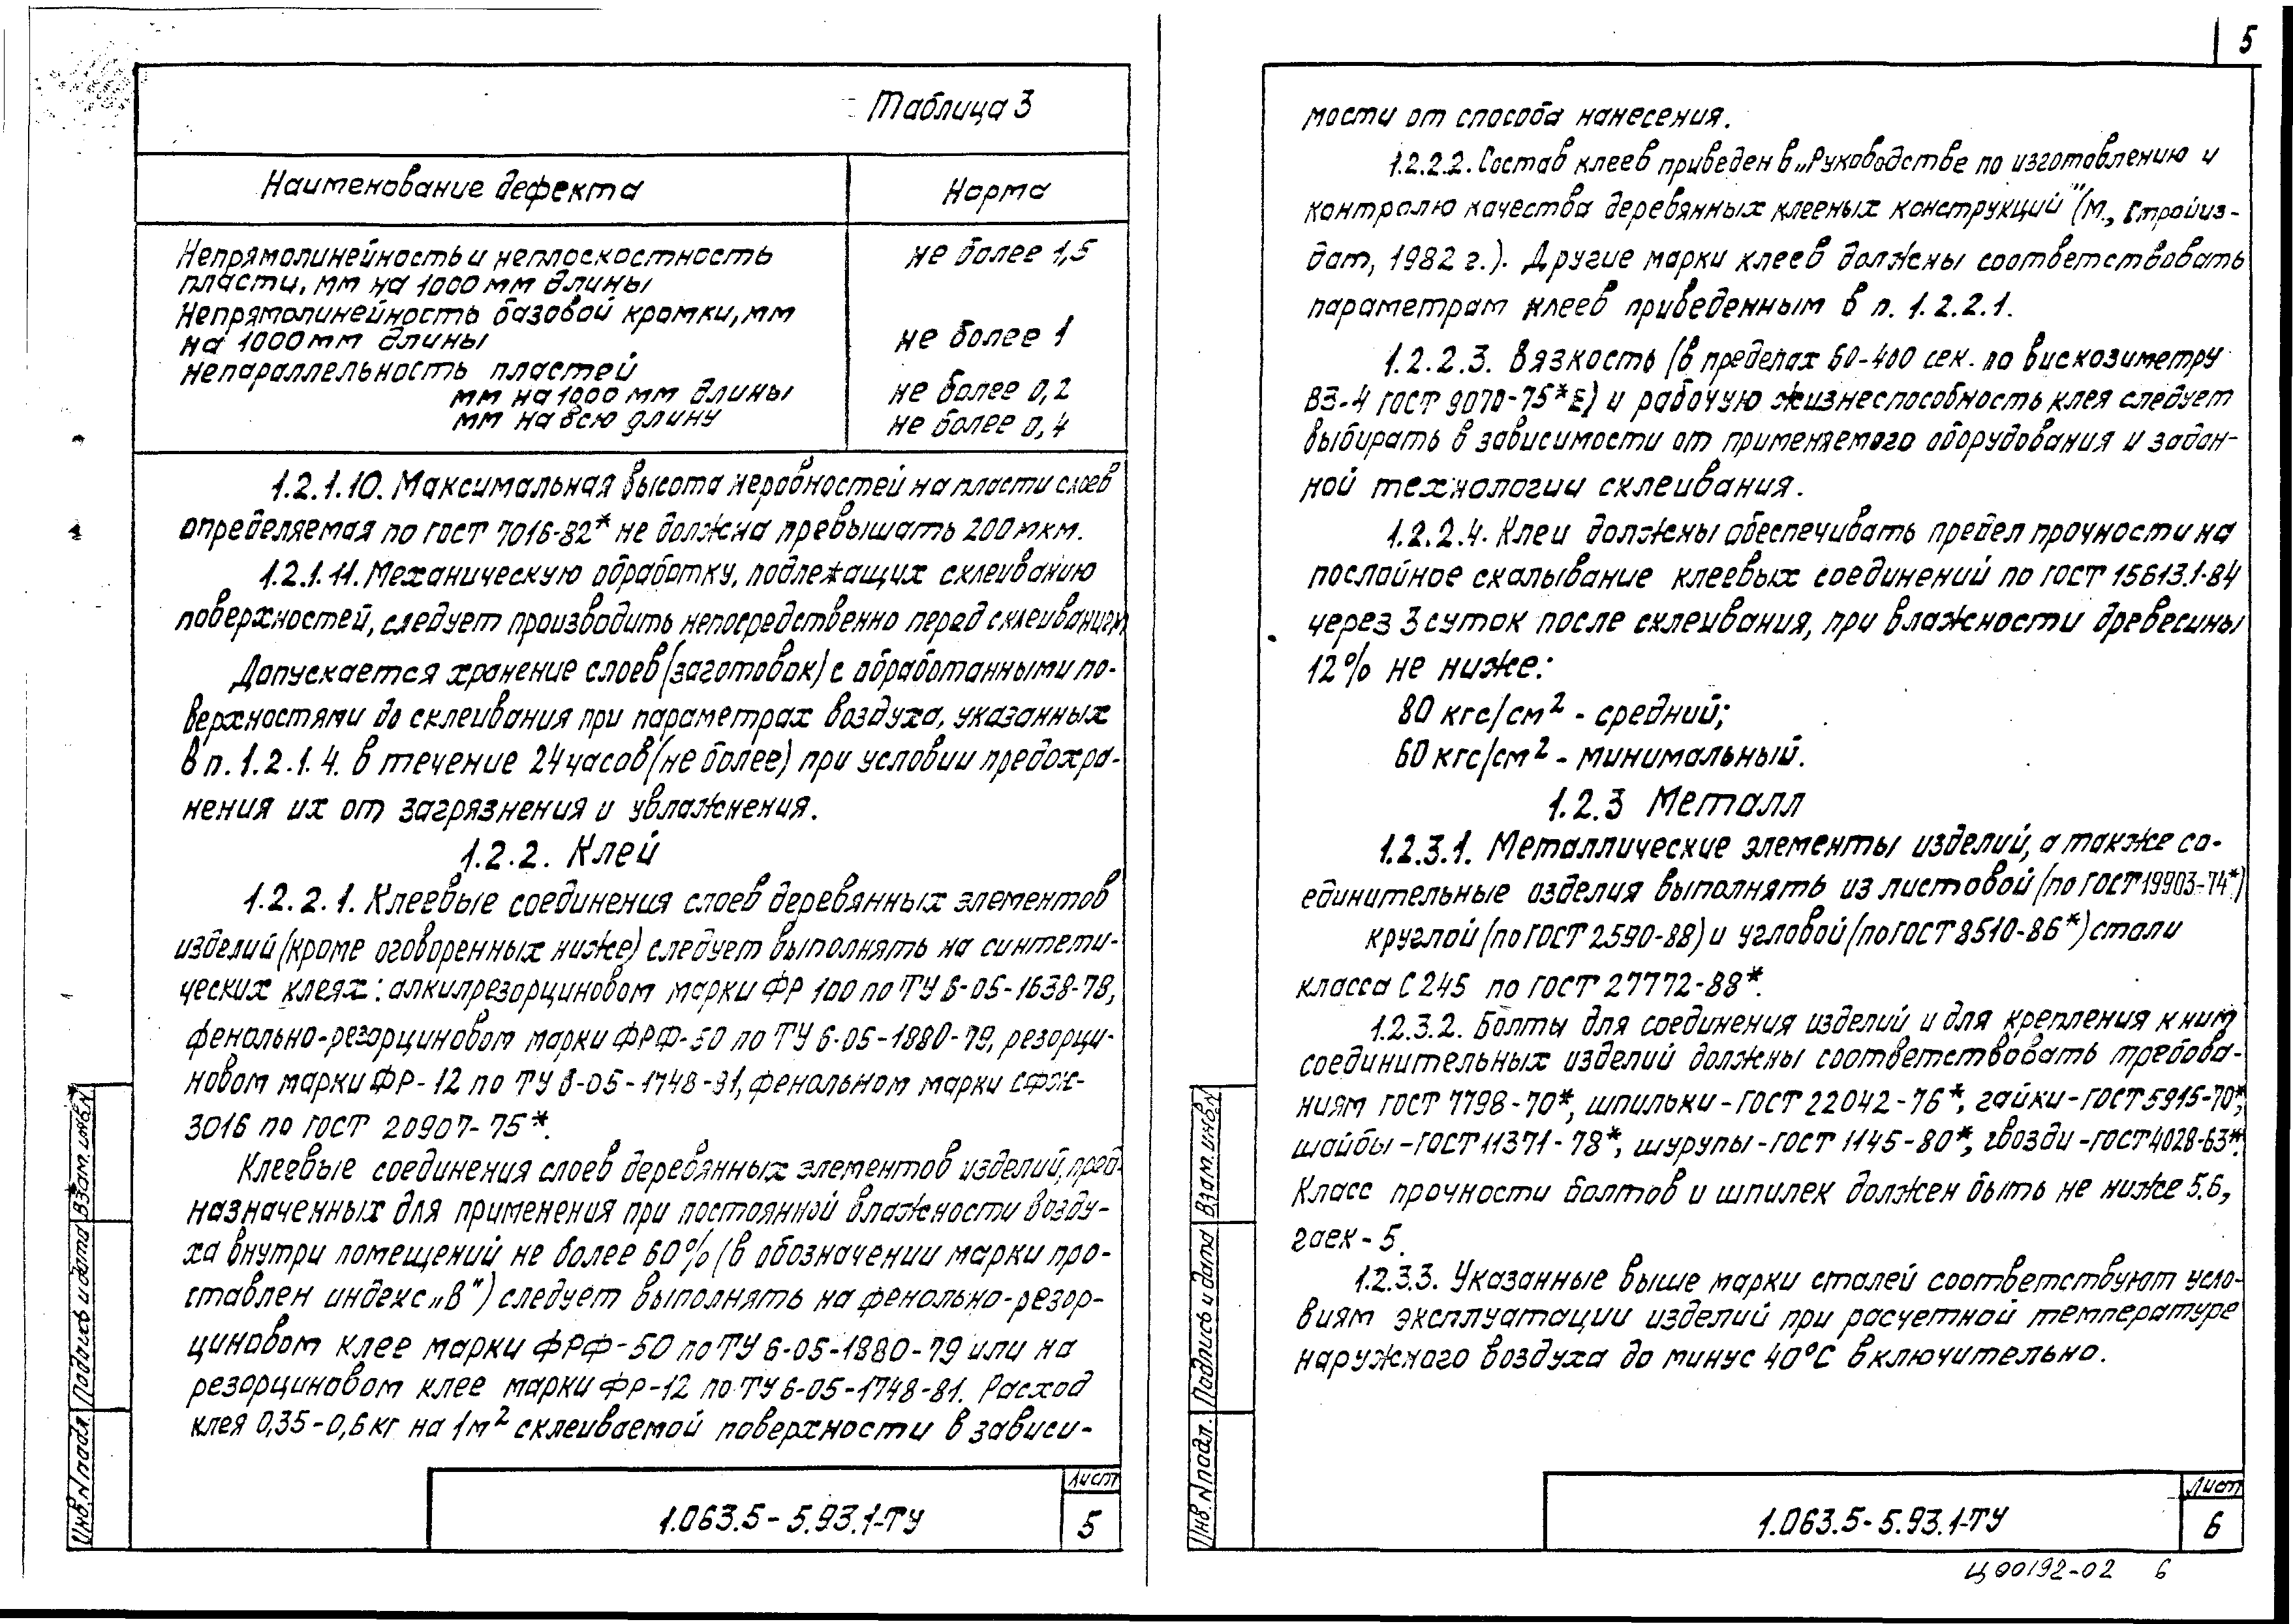 Таблица 3
Наименование дефекта
Норма
Непрямолинейность и неплоскостность
не более 1,5
пласти, мм на 1000 мм длины
Непрямолинейность базовой кромки, мм
на 1000 мм длины
не более 1
непараллельность пластей
мм на 1000 мм длины
не более 0,2
мм на всю длину
не более 0,4
1.2.1.10. Максимальная высота неравностей на пласти слоев
определяемая по ГОСТ 7016-82* не должна превышать 200 мкм.
1.2.1.11. Механическую обработку, подлежащих склеиванию
поверхностей, следует производить непосредственно перед склеиванием
Допускается хранение слоев (заготовок) с обработанными по-
верхностями до склеивания при параметрах воздуха, указанных
в п. 1.2.1.4. в течение 24 часов (не более) при условии предохра-
нения их от загрязнения и увлажнения.
1.2.2. Клей
1.2.2.1. Клеевые соединения слоев деревянных элементов
изделий (кроме оговоренных ниже) следует выполнять на синтети-
ческих клеях: алкилрезорциновом марки ФР 100 по ТУ 6-05-1638-78,
фенольно-резорциновом марки ФРФ-50 по ТУ 6-05-1880-79, резорци-
новом марки ФР-12 по ТУ 6-05-1748-81, фенольном марки СФЖ-
3016 по ГОСТ 20907-75*.
Клеевые соединения слоев деревянных элементов изделий, пред-
назначенных для применения при постоянной влажности возду-
ха внутри помещений не более 60% (в обозначении марки про-
ставлен индекс „В") следует выполнять на фенольно-резор-
циновом клее марки ФРФ-50 по ТУ 6-05-1880-79 или на
резорциновом клее марки ФР-12 по ТУ 6-05-1748-81. Расход
клея 0,35-0,6 кг на 1м² склеиваемой поверхности в зависи-
Инв. N подл. Подпись и дата Взам. инв. N
1.063.5-5.93.1-ТУ
Лист
5
5
мости от способа нанесения.
1.2.2.2. Состав клеев приведен в „Руководстве по изготовлению и
контролю качества деревянных клееных конструкций" (М., Стройиз-
дат, 1982 г.). Другие марки клеев должны соответствовать
параметрам клеев приведенным в п. 1.2.2.1.
1.2.2.3. Вязкость (в пределах 60-400 сек. по вискозиметру
ВЗ-4 ГОСТ 9070-75*Е) и рабочую жизнеспособность клея следует
выбирать в зависимости от применяемого оборудования и задан-
ной технологии склеивания.
1.2.2.4. Клеи должны обеспечивать предел прочности на
послойное скалывание клеевых соединений по ГОСТ 15613.1-84
через 3 суток после склеивания, при влажности древесины
12% не ниже:
80 кгс/см² - средний;
60 кгс/см² - минимальный.
1.2.3 Металл
1.2.3.1. Металлические элементы изделий, а также со-
единительные изделия выполнять из листовой (по ГОСТ 19903-74*)
круглой (по ГОСТ 2590-88) и угловой (по ГОСТ 8510-86*) стали
класса С 245 по ГОСТ 27772-88*.
1.2.3.2. Болты для соединения изделий и для крепления к ним
соединительных изделий должны соответствовать требова-
ниям ГОСТ 7798-70*, шпильки - ГОСТ 22042-76*, гайки - ГОСТ 5915-70*,
шайбы - ГОСТ 11371-78*, шурупы - ГОСТ 1145-80*, гвозди - ГОСТ 4028-63*.
Класс прочности болтов и шпилек должен быть не ниже 5.6,
гаек - 5.
1.2.3.3. Указанные выше марки сталей соответствуют усло-
виям эксплуатации изделий при расчетной температуре
наружного воздуха до минус 40°С включительно.
Инв. N подл. Подпись и дата Взам. инв. N
1.063.5-5.93.1-ТУ
Лист
6
Ц00192-02 6